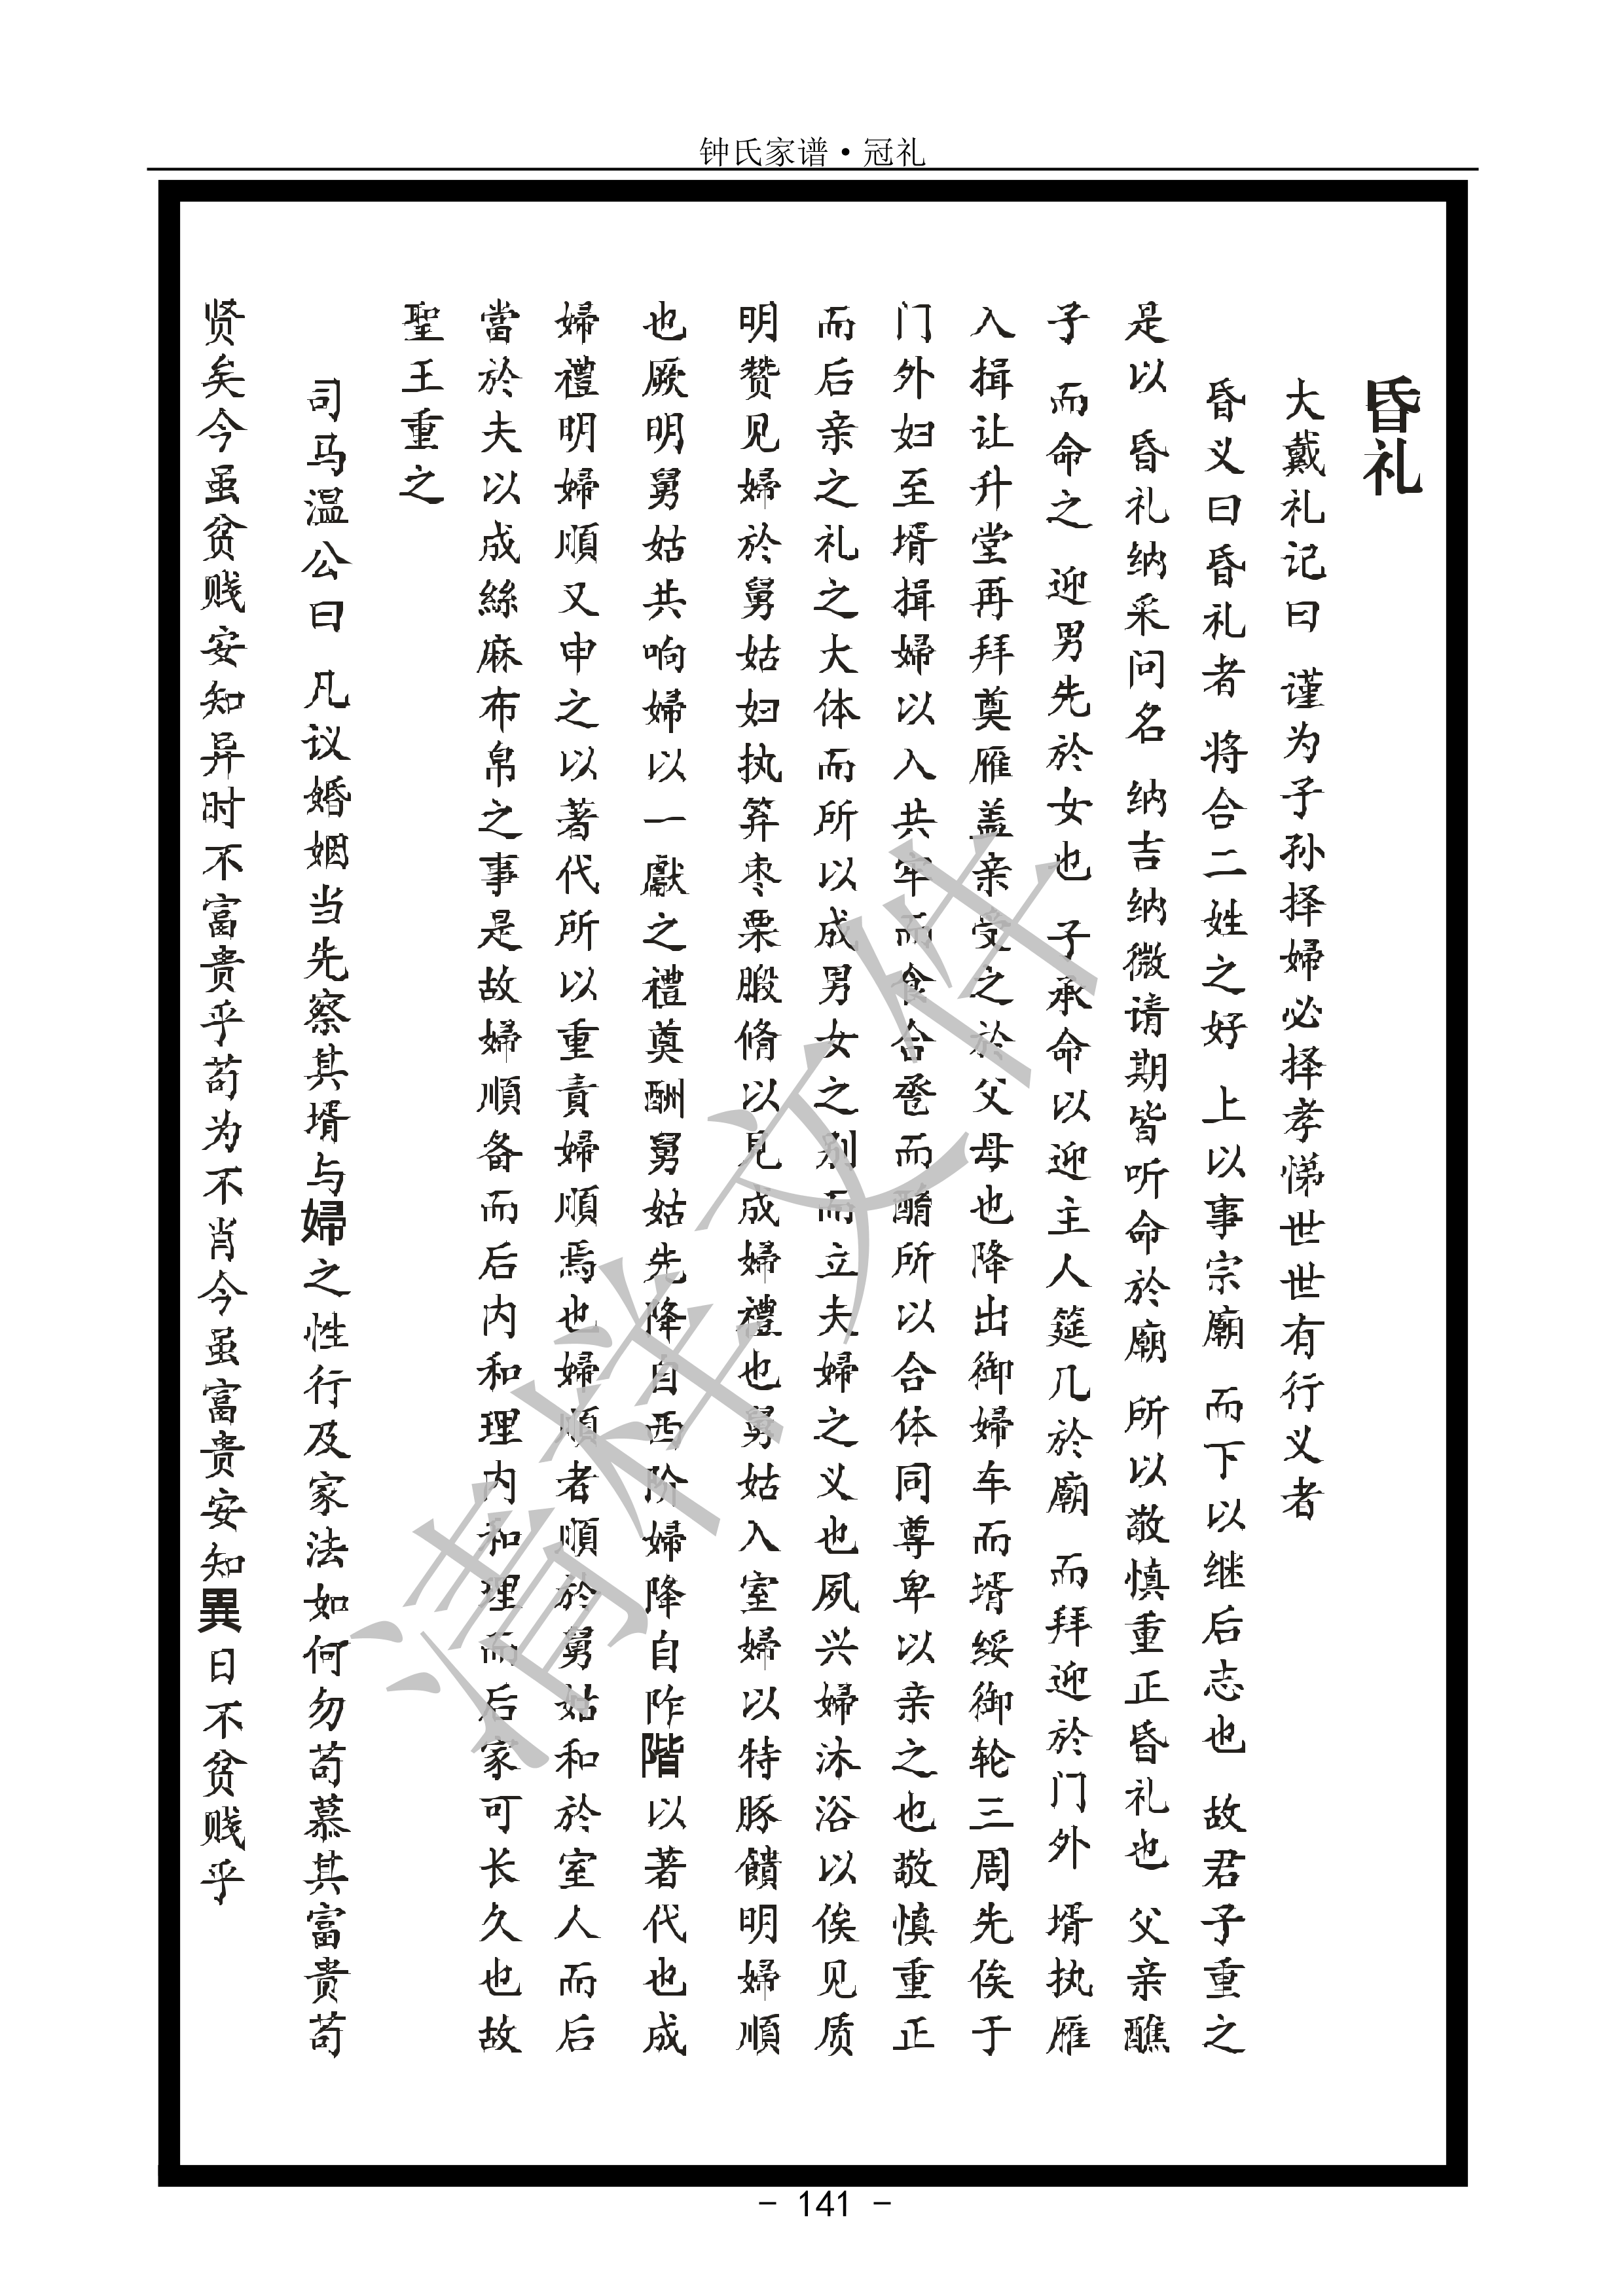 钟氏家谱·冠礼
昏礼
大戴礼记曰 谨为子孙择婦必择孝悌世世有行义者
昏义曰昏礼者 将合二姓之好 上以事宗廟 而下以继后志也 故君子重之
是以 昏礼纳采问名 纳吉纳微请期皆听命於廟 所以敬慎重正昏礼也 父亲醮
子 而命之 迎男先於女也 子承命以迎主人筵几於廟 而拜迎於门外 壻执雁
入揖让升堂再拜奠雁盖亲受之於父母也降出御婦车而壻绥御轮三周先俟于
门外妇至壻揖婦以入共牢而食合卺而酳所以合体同尊卑以亲之也敬慎重正
而后亲之礼之大体而所以成男女之别而立夫婦之义也夙兴婦沐浴以俟见质
明赞见婦於舅姑妇执笲枣栗腶脩以見成婦禮也舅姑入室婦以特豚饋明婦順
也厥明舅姑共响婦以一獻之禮奠酬舅姑先降自西阶婦降自阼階以著代也成
婦禮明婦順又申之以著代所以重責婦順焉也婦順者順於舅姑和於室人而后
當於夫以成絲麻布帛之事是故婦順备而后内和理内和理而后家可长久也故
聖王重之
司马温公曰 凡议婚姻当先察其壻与婦之性行及家法如何勿苟慕其富贵苟
贤矣今虽贫贱安知异时不富贵乎苟为不肖今虽富贵安知異日不贫贱乎
清样文件
- 141 -